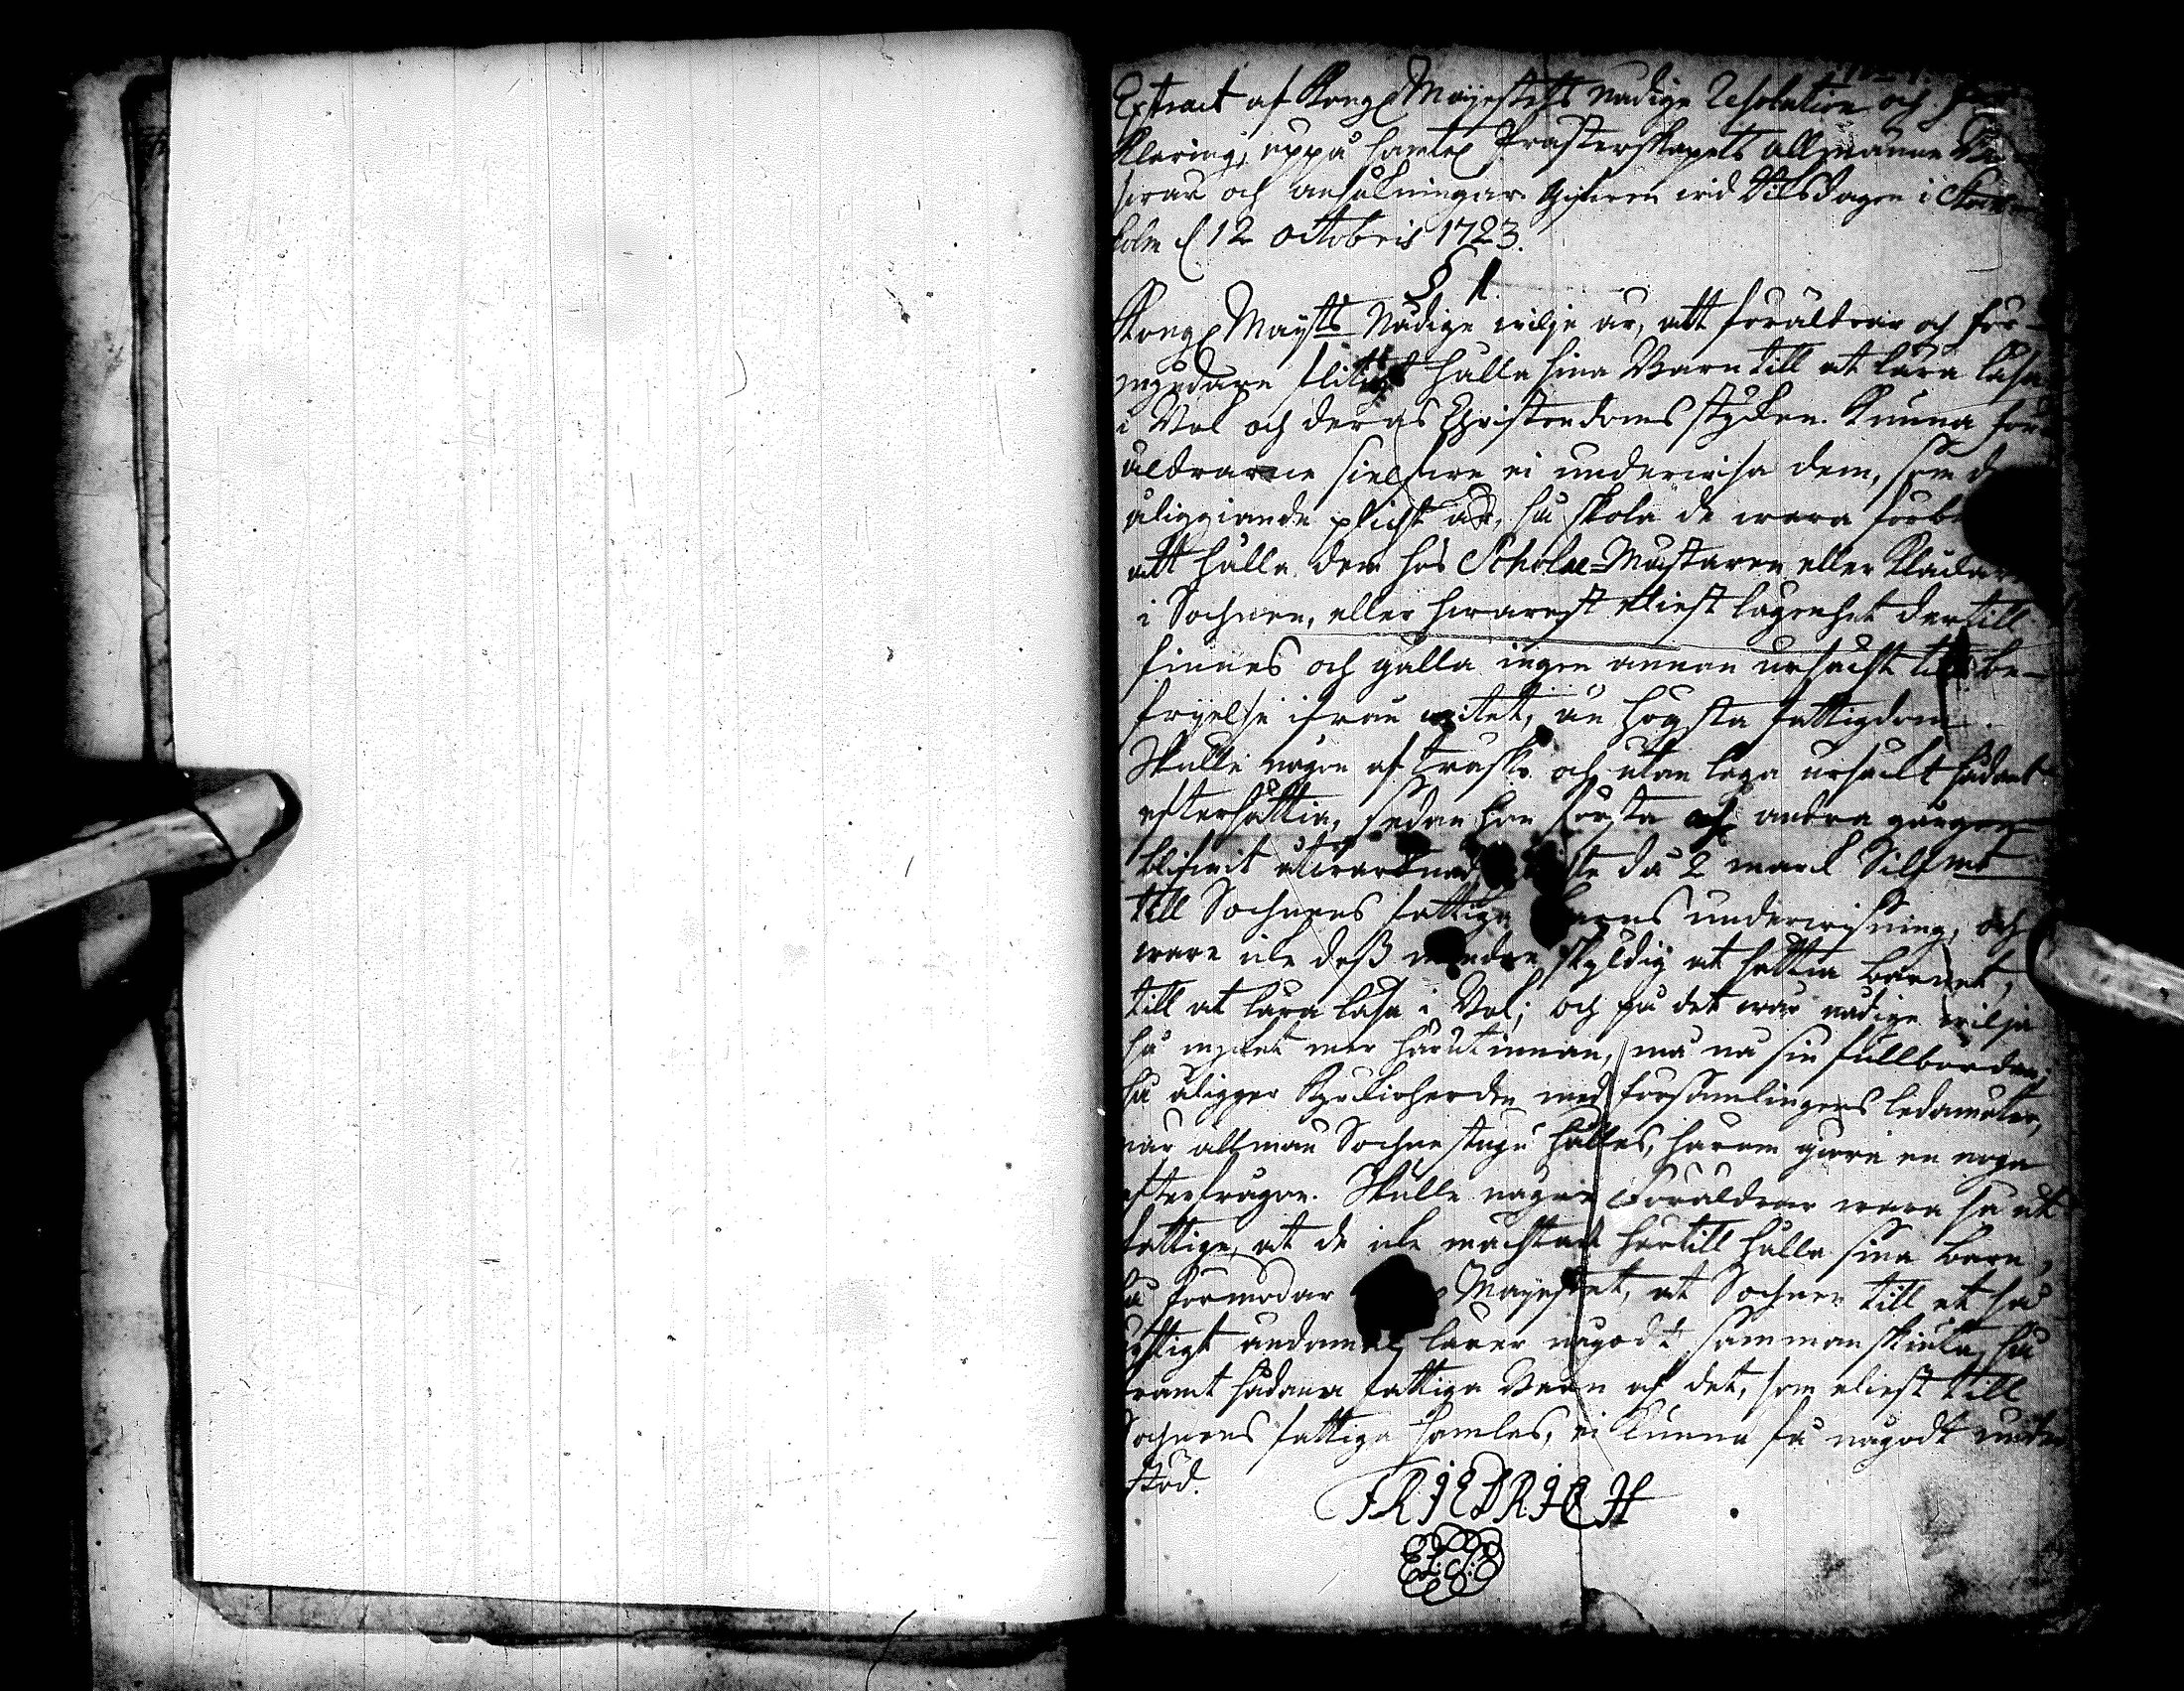 Extract af Kongl Mayestetts nådige Resolution och För
klaring, uppå samtel Prästerskapets allmänne Be
swär och ansökningar. Gifwen wid Riksdagen i Stock
holm d 12 octobris 1723.
§ 1.
Kongl Mayts Nådige wilje är, att föräldrar och för-
myndare flitigt hålla sina Barn till at lära läsa
i Bok och deras Christendoms stycken. Kunna för
äldrarne sielfwe ei underwisa dem, som
åliggiande plicht är, så skola de wara
att hålla dem hos Scholæ-Mästaren eller Klåckar
i Sochnen, eller hwarest eliest lägenhet dertill
finnes och gälla ingen annan ursächt till be-
fryelse ifrån witet, än högsta fattigdom.
Skulle någon af träsko och utan laga ursäckt sådant
eftersättia, sedan han första och andra gången
blifwit åtwarnad då 2 mark Silfmt
till Sochnens fattiga Barns underwisning, och
ware icke dess mindre skyldig at sättia barnet,
till at lära läsa i Bok; och på det wår nådige wilja
så mycket mer härutinnan, må nå sin fullbordan;
så åligger Kyrkioherden med församlingens ledamöter,
när allmän Sochnestugu hålles, härom giöra en noga
efterfrågan. Skulle någre Föräldrar wara så ut
fattige, at de icke mächtade härtill hålla sina barn,
så förmodar Mayestet, at Sochnen till et så
nyttigt ändamål lärer någodt sammanskiuta, så
framt sådana fattiga Barn af det, som eliest till
Sochnens fattiga samlas, ei kunna få någodt under
stöd.
FRIEDRICH